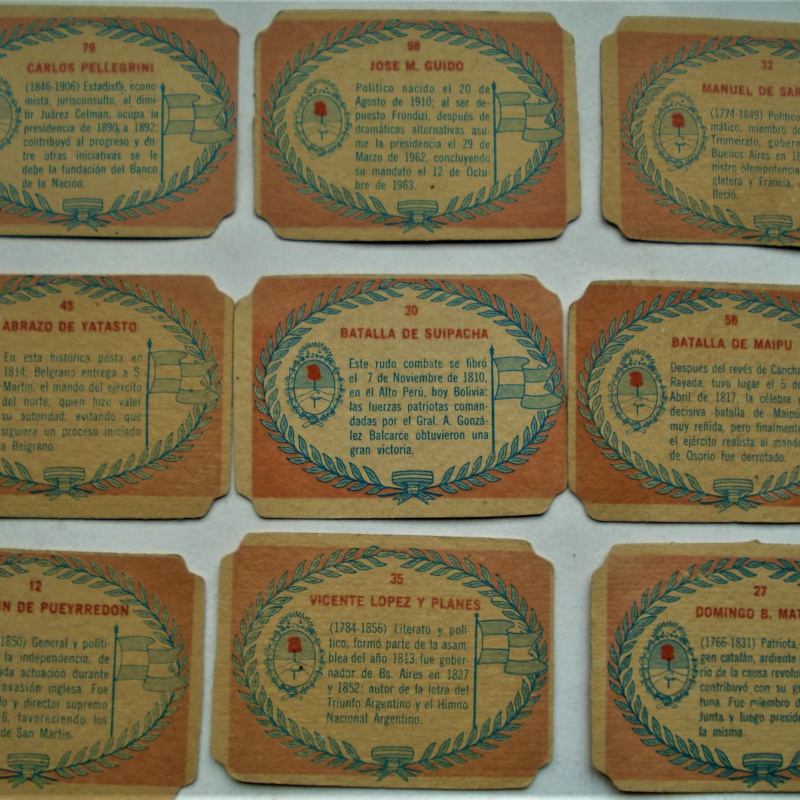 79
CARLOS PELLEGRINI
(1846-1906) Estadista, econo-
mista, jurisconsulto, al dimi-
tir Juárez Celman, ocupa la
presidencia de 1890 a 1892;
contribuyó al progreso y en-
tre otras iniciativas se le
debe la fundación del Banco
de la Nación.
98
JOSE M. GUIDO
Político nacido el 20 de
Agosto de 1910; al ser de-
puesto Frondizi, después de
dramáticas alternativas asu-
me la presidencia el 29 de
Marzo de 1962, concluyendo
su mandato el 12 de Octu-
bre de 1963.
32
MANUEL DE SAR
(1774-1849) Político
mático, miembro d
Triunvirato, gobern
Buenos Aires en 18
nistro plenipotencia
glatera y Francia,
lleció.
45
ABRAZO DE YATASTO
En esta histórica posta en
1814, Belgrano entrega a S.
Martín, el mando del ejército
del norte; quien hizo valer
su autoridad, evitando que
siguiera un proceso iniciado
a Belgrano.
30
BATALLA DE SUIPACHA
Este rudo combate se libró
el 7 de Noviembre de 1810,
en el Alto Perú, hoy Bolivia:
las fuerzas patriotas coman-
dadas por el Gral. A. Gonzá-
lez Balcarce obtuvieron una
gran victoria.
56
BATALLA DE MAIPU
Después del revés de Cancha
Rayada, tuvo lugar el 5 de
Abril de 1817, la célebre y
decisiva batalla de Maipú
muy reñida, pero finalmente
el ejército realista al mando
de Osorio fue derrotado.
12
N DE PUEYRREDON
1850) General y políti-
la independencia, de
ada actuación durante
invasión inglesa. Fue
do y director supremo
6, favoreciendo los
de San Martín.
35
VICENTE LOPEZ Y PLANES
(1784-1856) Literato y polí-
tico, formó parte de la asam-
blea del año 1813, fue gober-
nador de Bs. Aires en 1827
y 1852; autor de la letra del
Triunfo Argentino y el Himno
Nacional Argentino.
27
DOMINGO B. MAT
(1766-1831) Patriota,
gen catalán, ardiente
rio de la causa revolu
contribuyó con su g
tuna. Fue miembro d
Junta y luego presid
la misma.